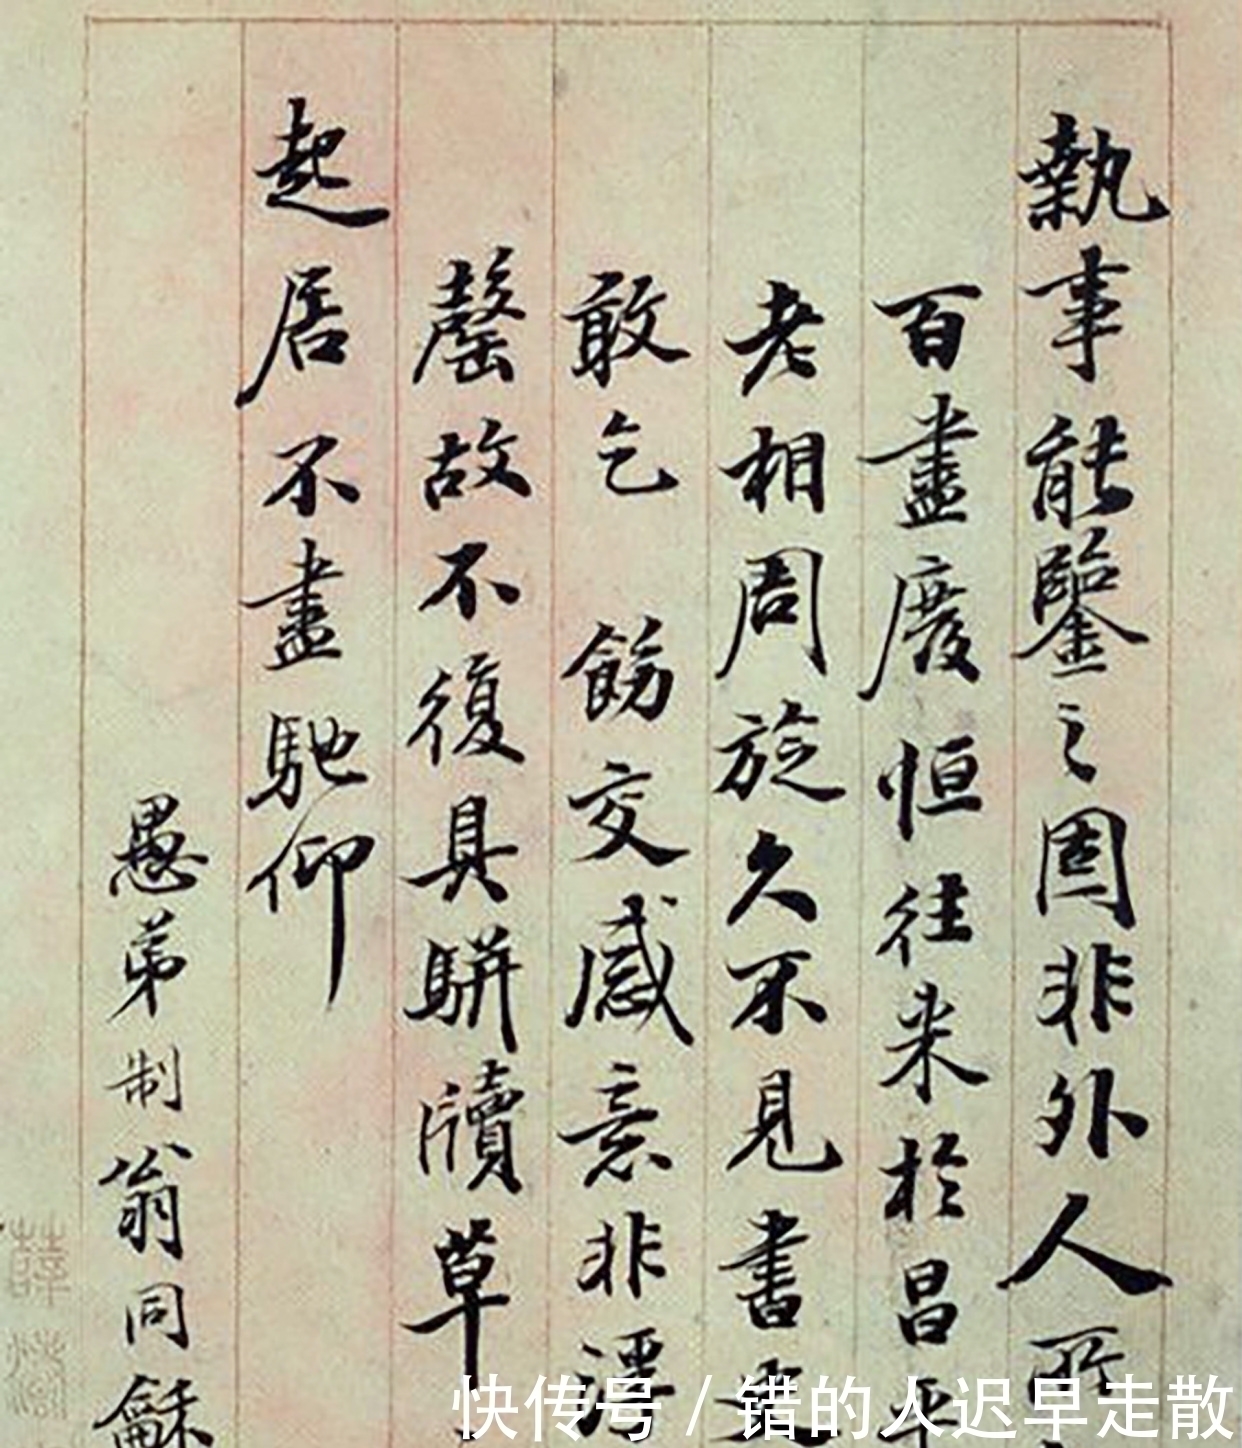 執事能鑒之固非外人所
百盡度恒往来於昌平
老相周旋久不見書
敢乞 飭交感意非
罄故不復具駢牘草
起居不盡馳仰
愚弟制翁同龢
快传号/错的人迟早走散